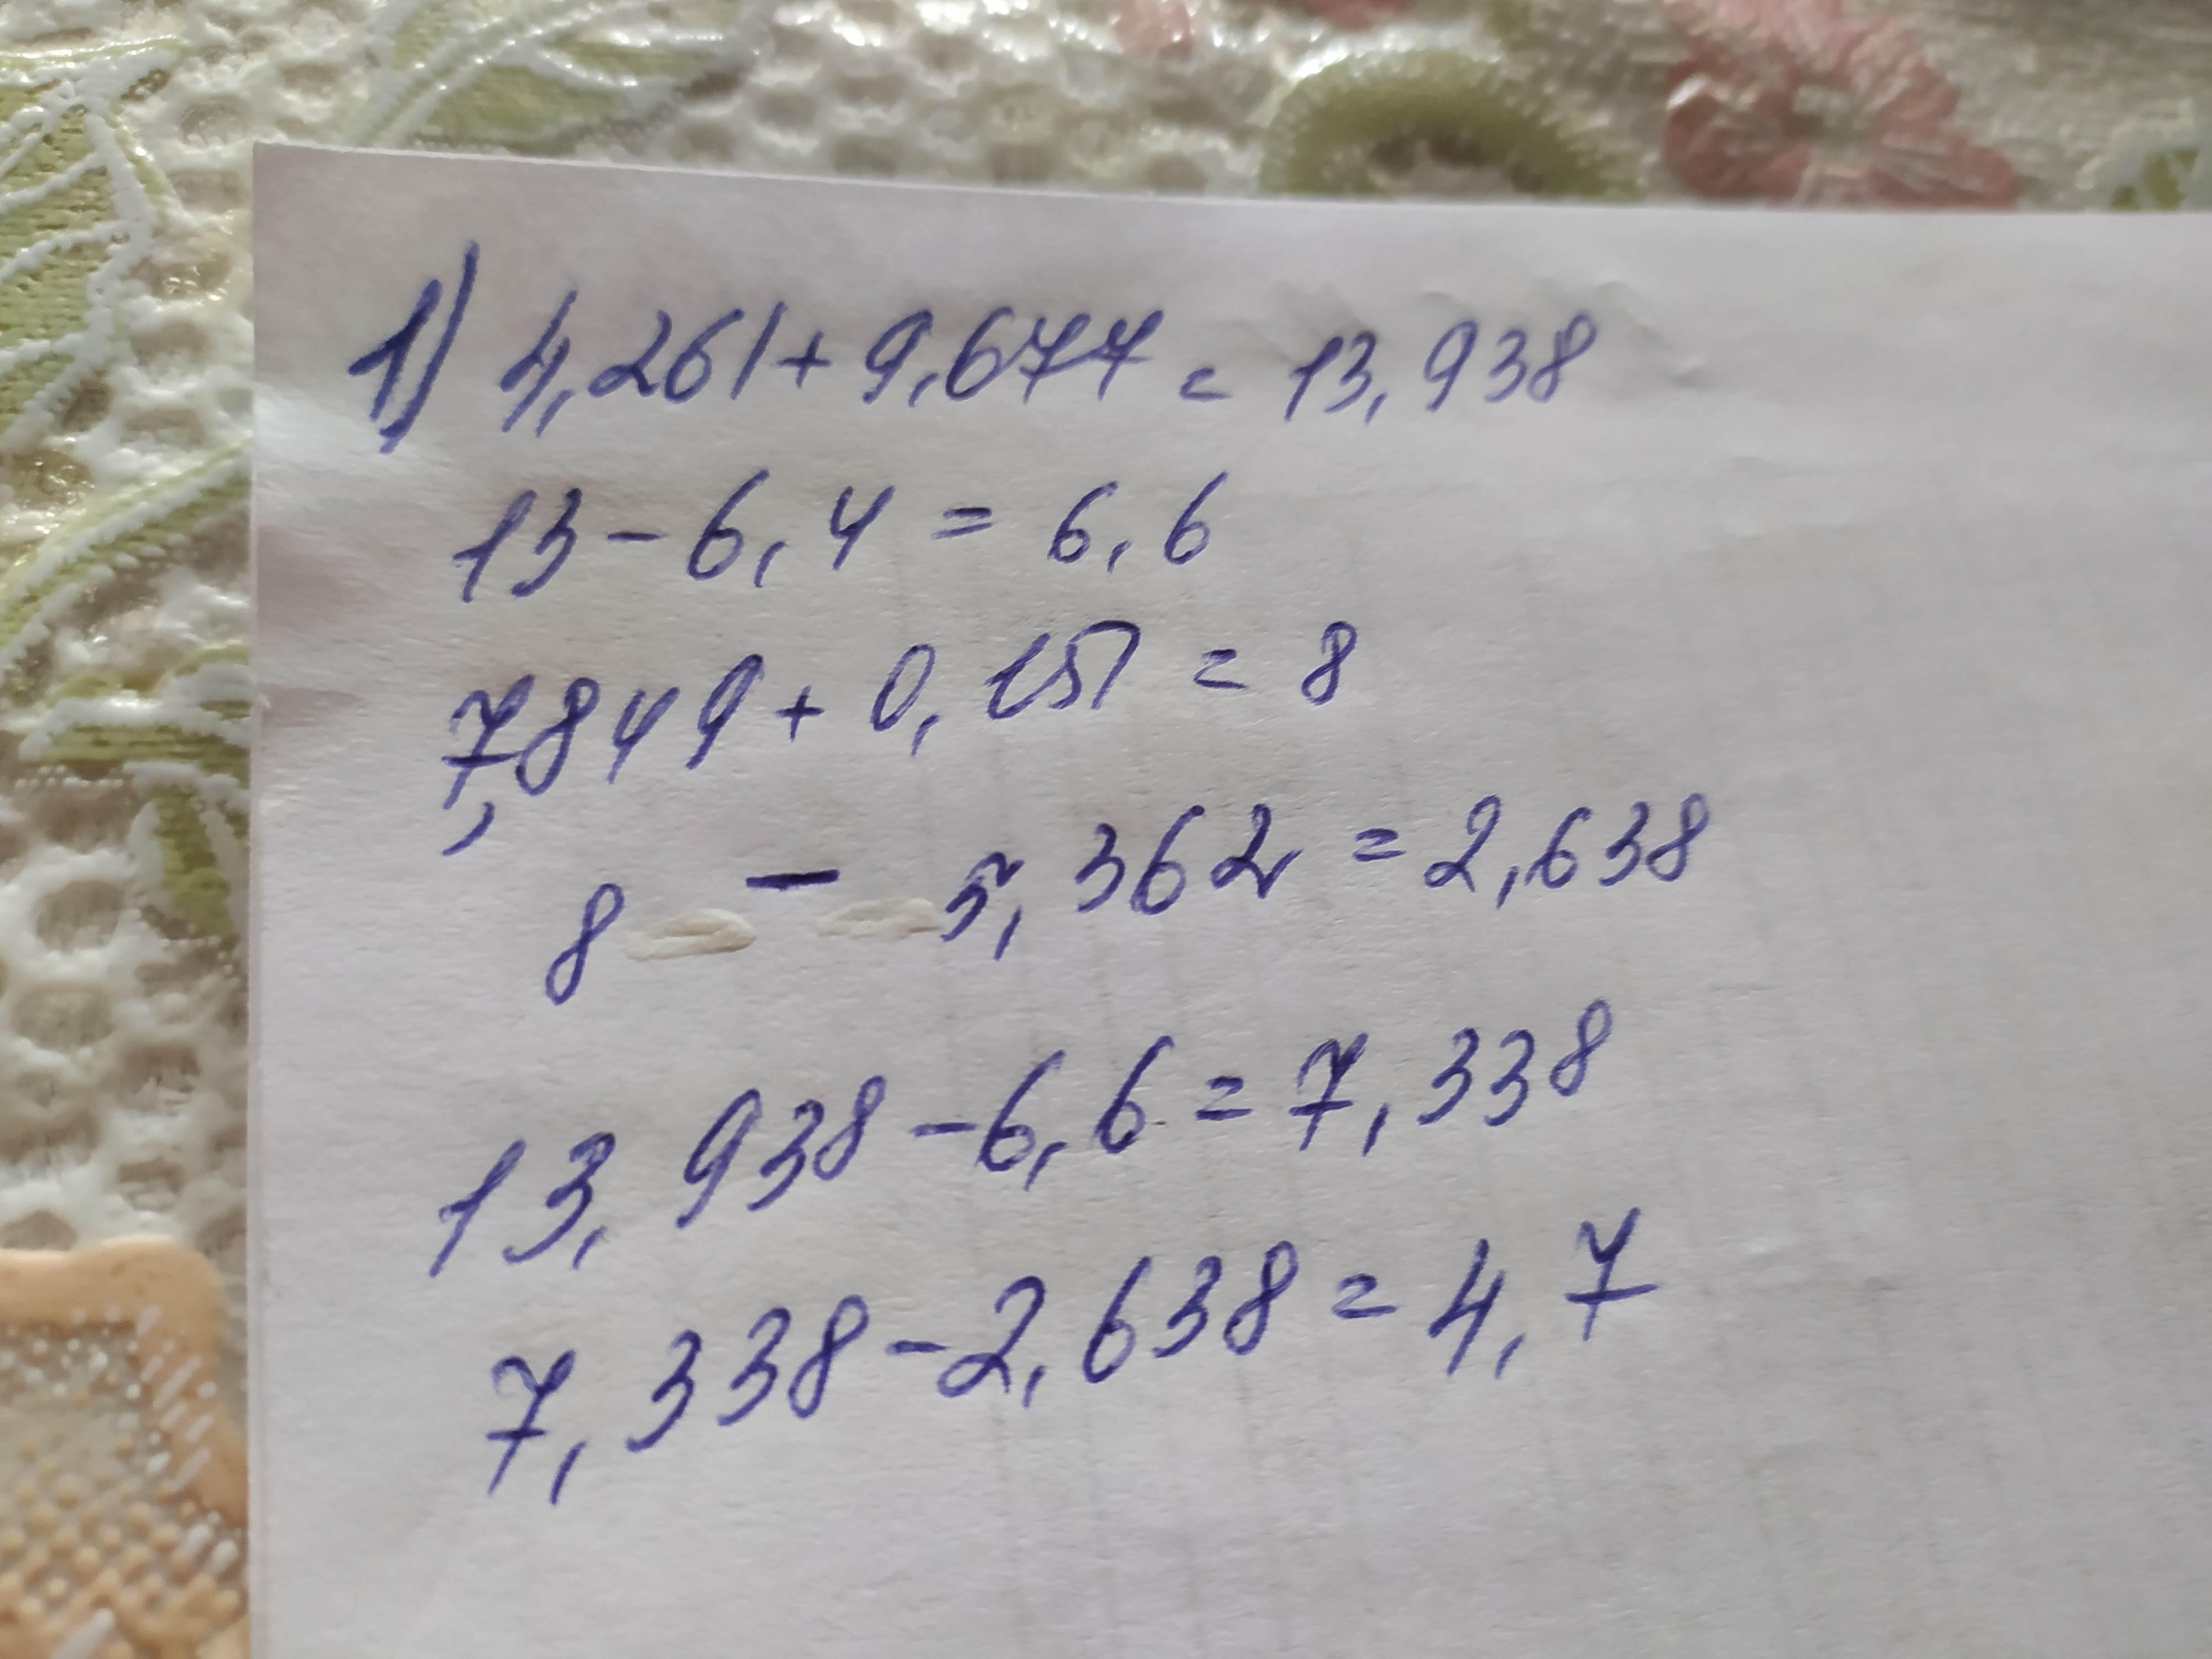 1) 4,261 + 9,677 = 13,938
13 - 6,4 = 6,6
7,849 + 0,151 = 8
8 - 5,362 = 2,638
13,938 - 6,6 = 7,338
7,338 - 2,638 = 4,7